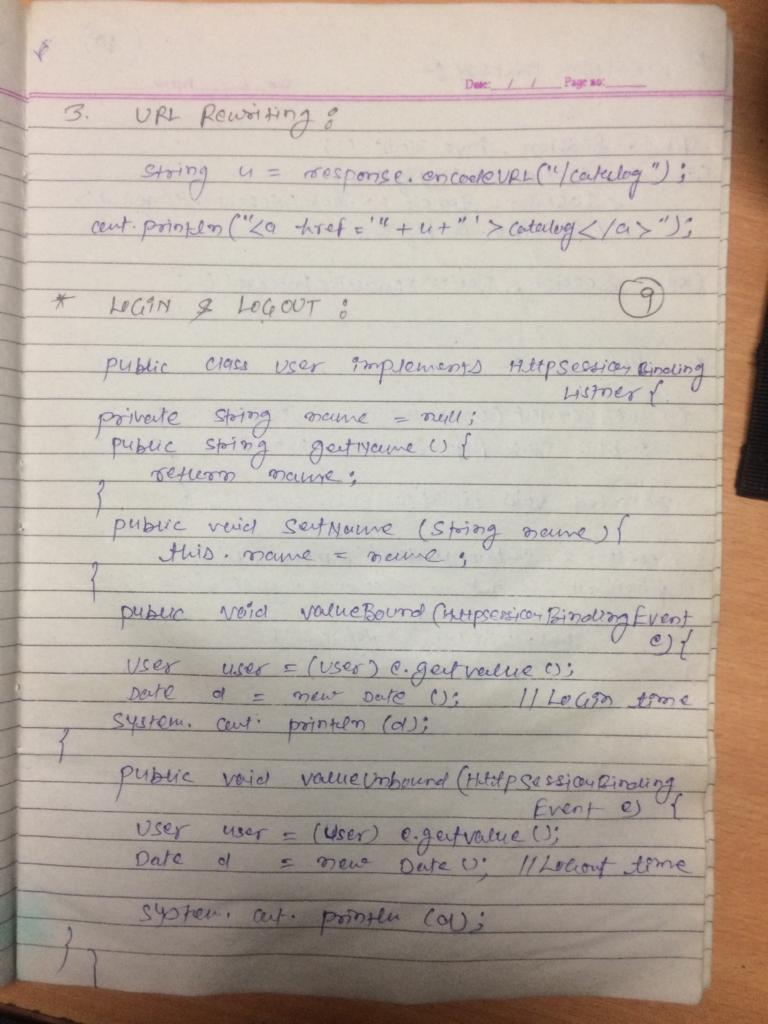 Date: / / Page no:
3. URL Rewriting :
String u = response.encodeURL("/catalog");
out.println("<a href='" + u + "' > catalog</a>");
* LOGIN & LOGOUT :
9
public class User implements HttpSessionBinding
Listner {
private String name = null;
public String getName () {
return name;
}
public void SetName (String name) {
this. name = name ;
}
public void valueBound (HttpSessionBindingEvent
e) {
User user = (User) e.getvalue ();
Date d = new Date (); // LoGin time
System. out. println (d);
}
public void valueUnbound (HttpSessionBinding
Event e) {
User user = (User) e.getvalue ();
Date d = new Date (); // Logout time
System. out. println (d);
}
}